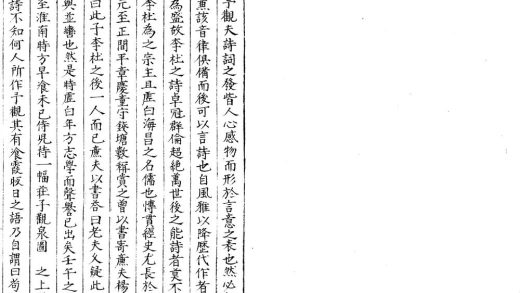 予觀夫詩詞之發皆人心感物而形於言意之表也然必
兼該音律俱備而後可以言詩也自風雅以降歷代作者
為盛故李杜之詩卓冠群倫超絕萬世後之能詩者莫不
李杜為之宗主且虛白海昌之名儒也慱貫經史尤長於
元至正間平章慶童守錢塘數稱賞之曾以書寄廉夫楊
曰此子李杜之後一人而已廉夫以書荅曰老夫久疑此
與並轡也然是時虛白年方志學而聲譽已出矣壬午之
至淮南時方早飡未已侍兒持一幅莊子觀泉圖 之上
詩不知何人所作子觀其有飡霞㕞日之語乃自謂曰苟